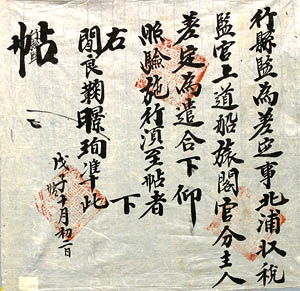 行縣監為差定事北浦收稅
監官上道船旅閣官分主人
差定為遣合下仰
照驗施行須至帖者
右 下
閔良鞠 準此
戊子十月初二日
帖